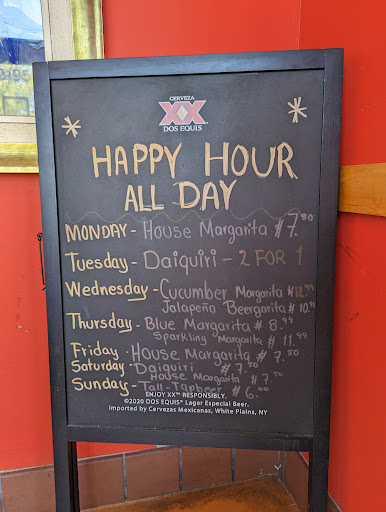 CERVEZA
XX
DOS EQUIS
HAPPY HOUR
ALL DAY
MONDAY - House Margarita $7.50
Tuesday - Daiquiri - 2 FOR 1
Wednesday - Cucumber Margarita $12.99
Jalapeño Beergarita $10.99
Thursday - Blue Margarita $8.99
Sparkling Margarita $11.99
Friday - House Margarita $7.50
Saturday - Daiquiri $7.50
House Margarita $7.50
Sunday - Tall-Tapbeer $6.00
ENJOY XX™ RESPONSIBLY.
©2020 DOS EQUIS® Lager Especial Beer.
Imported by Cervezas Mexicanas, White Plains, NY